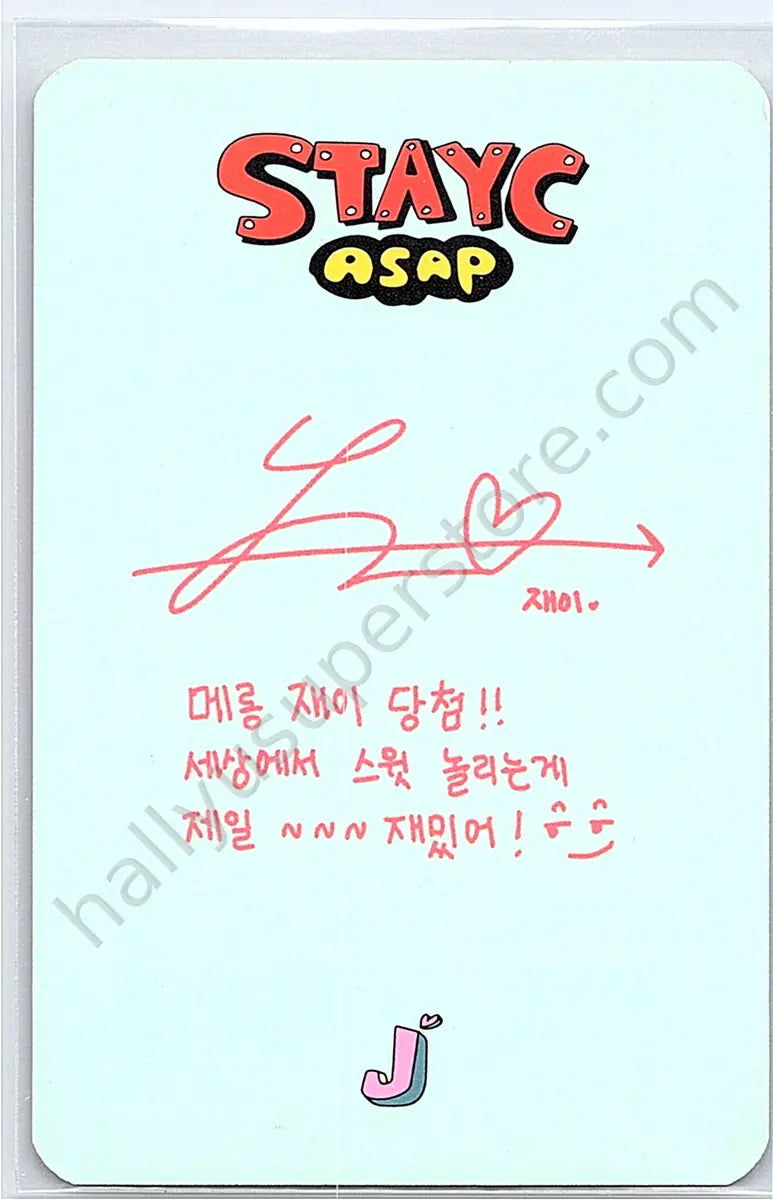 STAYC
ASAP
재이.
메롱 재이 당첨!!
세상에서 스윗 놀리는게
제일 ~~~ 재밌어!
J
hallyusuperstore.com